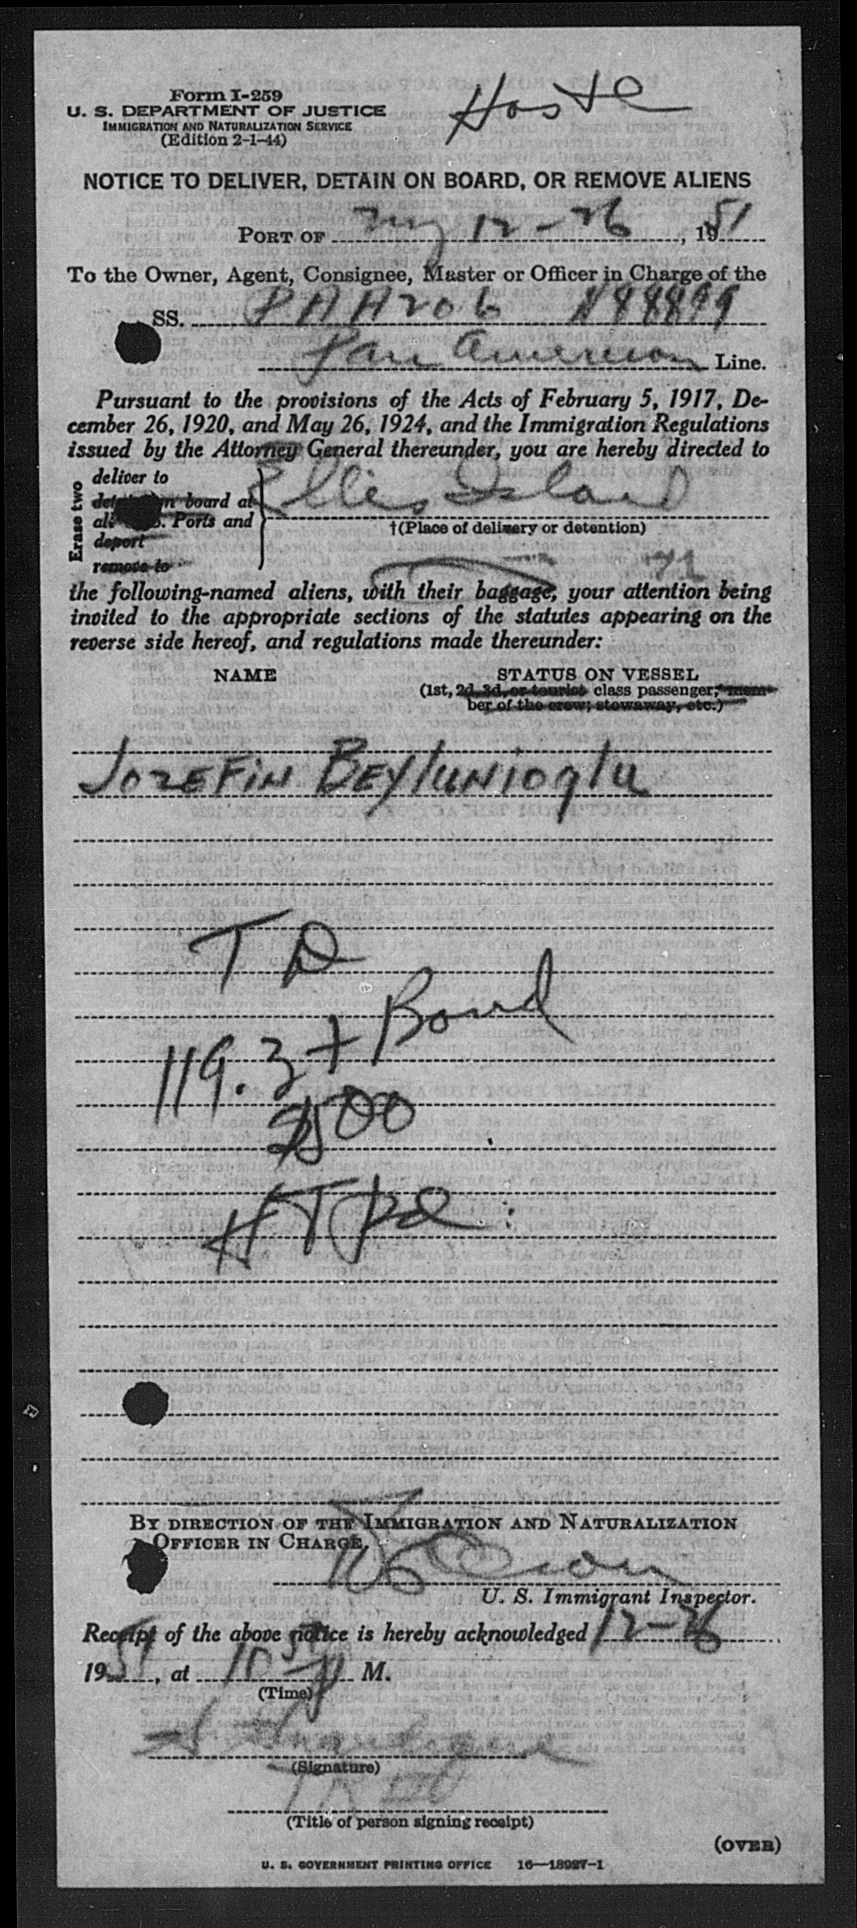 Form I-259
U. S. DEPARTMENT OF JUSTICE
IMMIGRATION AND NATURALIZATION SERVICE
(Edition 2-1-44)
NOTICE TO DELIVER, DETAIN ON BOARD, OR REMOVE ALIENS
PORT OF NY 12-26, 1951
To the Owner, Agent, Consignee, Master or Officer in Charge of the
SS. PAA 206 N88899
Pan American Line.
Pursuant to the provisions of the Acts of February 5, 1917, De-
cember 26, 1920, and May 26, 1924, and the Immigration Regulations
issued by the Attorney General thereunder, you are hereby directed to
Erase two
deliver to
on board at
all U.S. Ports and
deport
remove to
Ellis Island
†(Place of delivery or detention)
the following-named aliens, with their baggage, your attention being
invited to the appropriate sections of the statutes appearing on the
reverse side hereof, and regulations made thereunder:
NAME STATUS ON VESSEL
(1st, 2d, 3d, or tourist class passenger; mem-
ber of the crew; stowaway, etc.)
Jozefin Beylunioglu
T D
119.3 + Bond
$500
HT pd
BY DIRECTION OF THE IMMIGRATION AND NATURALIZATION
OFFICER IN CHARGE,
U. S. Immigrant Inspector.
Receipt of the above notice is hereby acknowledged 12-26
1951, at M.
(Time)
(Signature)
(Title of person signing receipt)
(OVER)
U. S. GOVERNMENT PRINTING OFFICE 16—18027-1